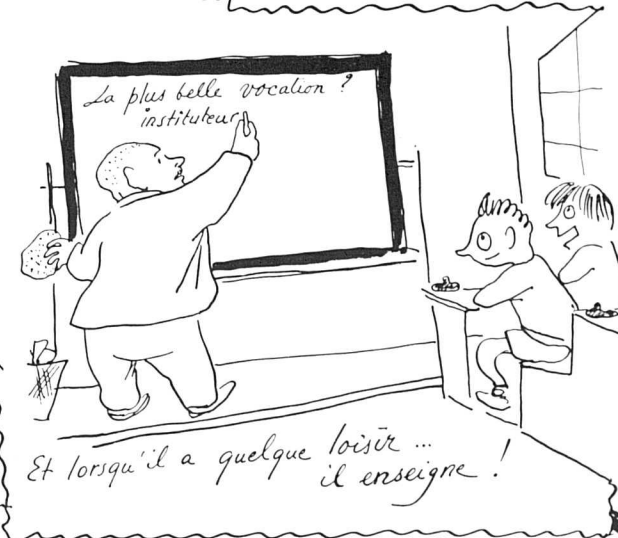 La plus belle vocation ?
instituteur
Et lorsqu'il a quelque loisir ...
il enseigne !